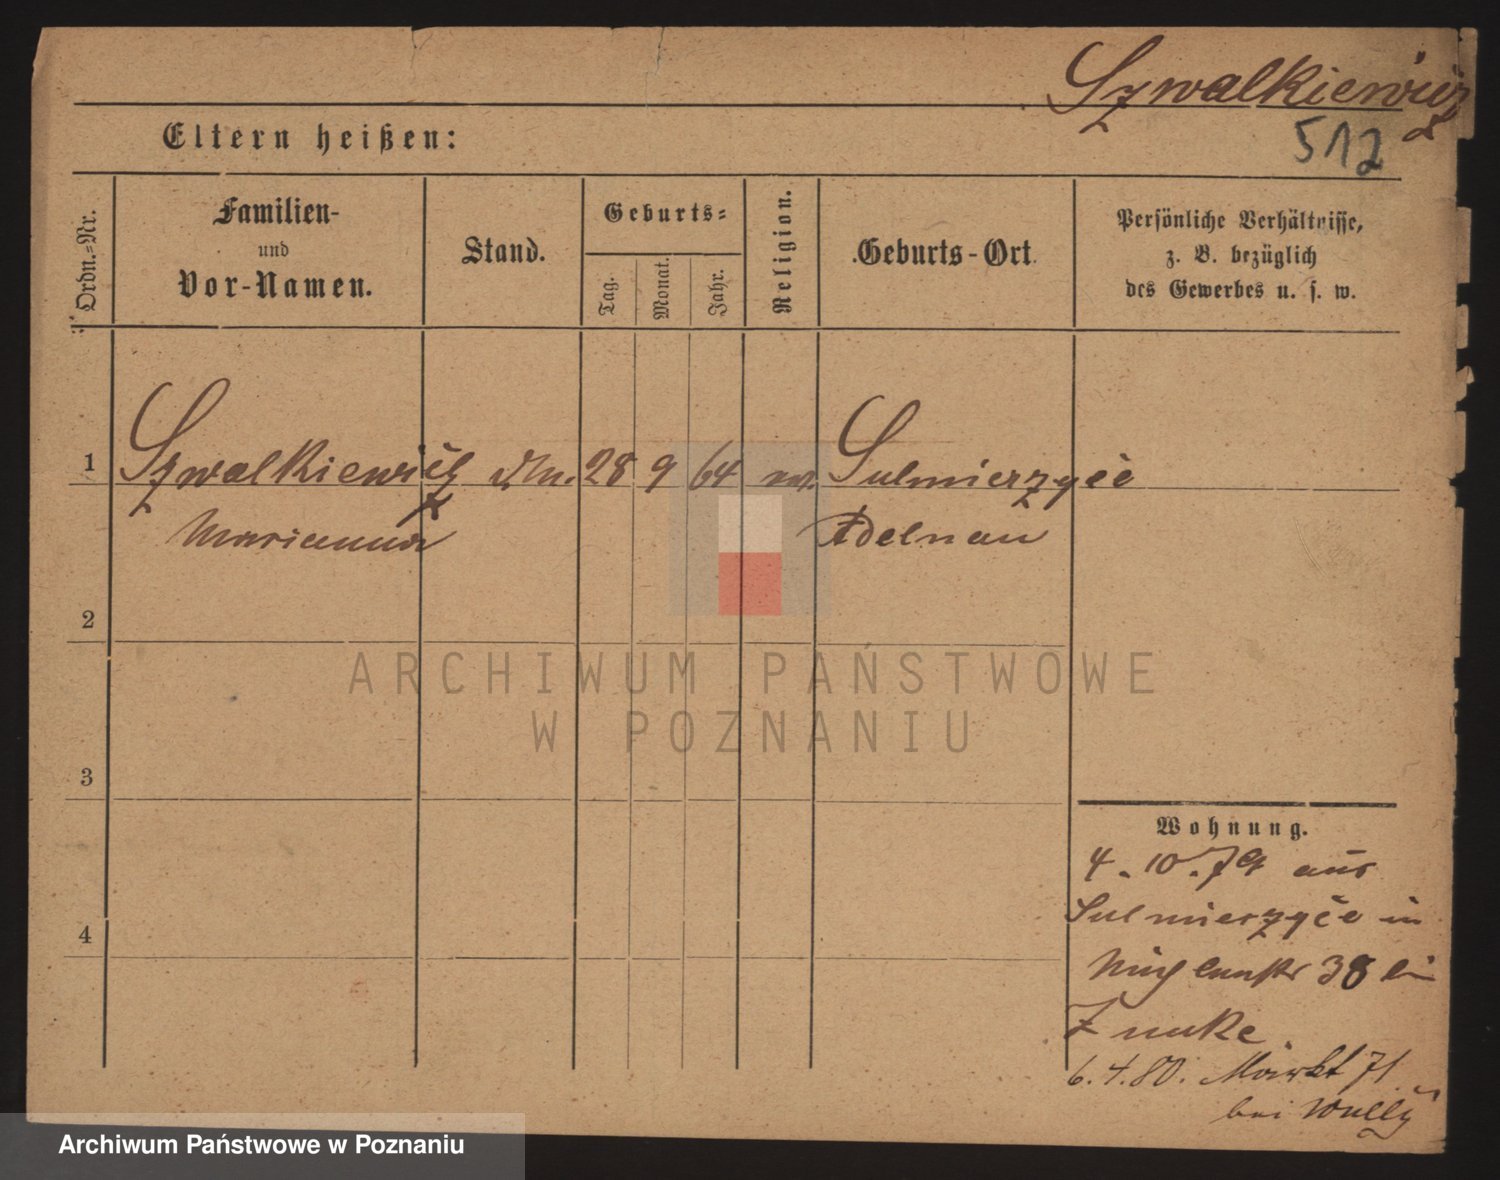 Szwalkiewicz
512
Eltern heißen:
Ordn.-Nr.
Familien-
und
Vor-Namen.
Stand.
Geburts-
Tag.
Monat.
Jahr.
Religion.
Geburts-Ort.
Persönliche Verhältnisse,
z. B. bezüglich
des Gewerbes u. s. w.
1 Szwalkiewicz 28 9 64 Sulmierzyce
Marianna Adelnau
2
3
4
Wohnung.
4.10.79 aus
Sulmierzyce in
38
6.4.80. Markt 71
bei
ARCHIWUM PAŃSTWOWE
W POZNANIU
Archiwum Państwowe w Poznaniu